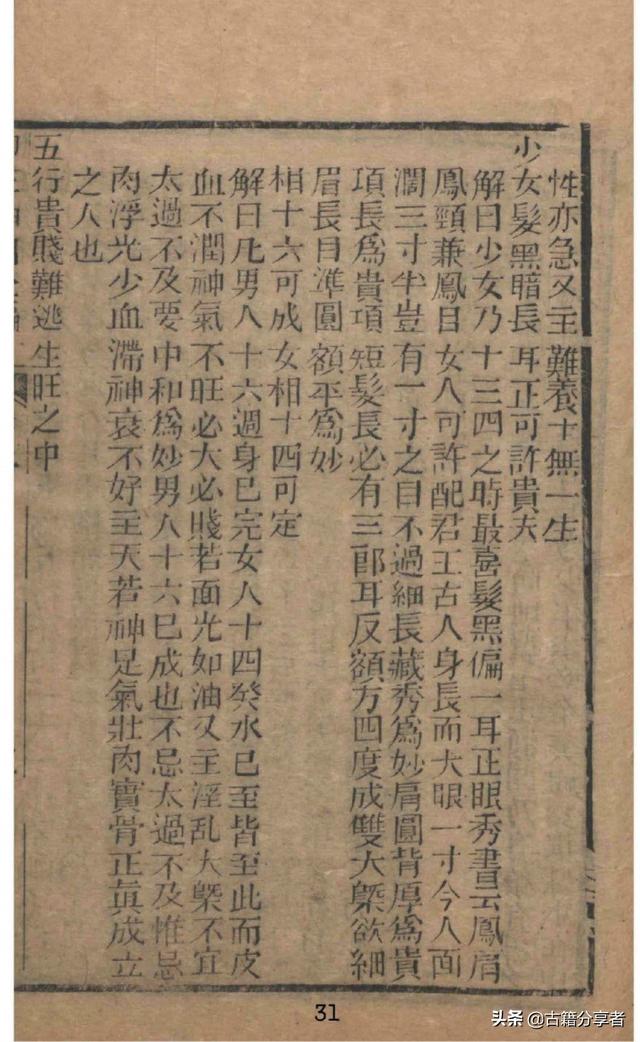 性亦急又主難養十無一生
少女髮黑暗長耳正可許貴夫
解曰少女乃十三四之時最喜髮黑偏一耳正眼秀書云鳳肩
鳳頸兼鳳目女人可許配君王古人身長而大眼一寸今人面
濶三寸半豈有一寸之目不過細長藏秀爲妙肩圓背厚爲貴
項長爲貴項短髮長必有三郎耳反額方四度成雙大槩欲細
眉長目準圓額平爲妙
相十六可成女相十四可定
解曰凡男人十六週身已完女人十四癸水已至皆至此而皮
血不潤神氣不旺必大必賤若面光如油又主淫乱大槩不宜
太過不及要中和爲妙男人十六已成也不忌太過不及惟忌
肉浮光少血滯神衰不好主夭若神足氣壯肉實骨正眞成立
之人也
五行貴賤難逃生旺之中
31
头条 @古籍分享者